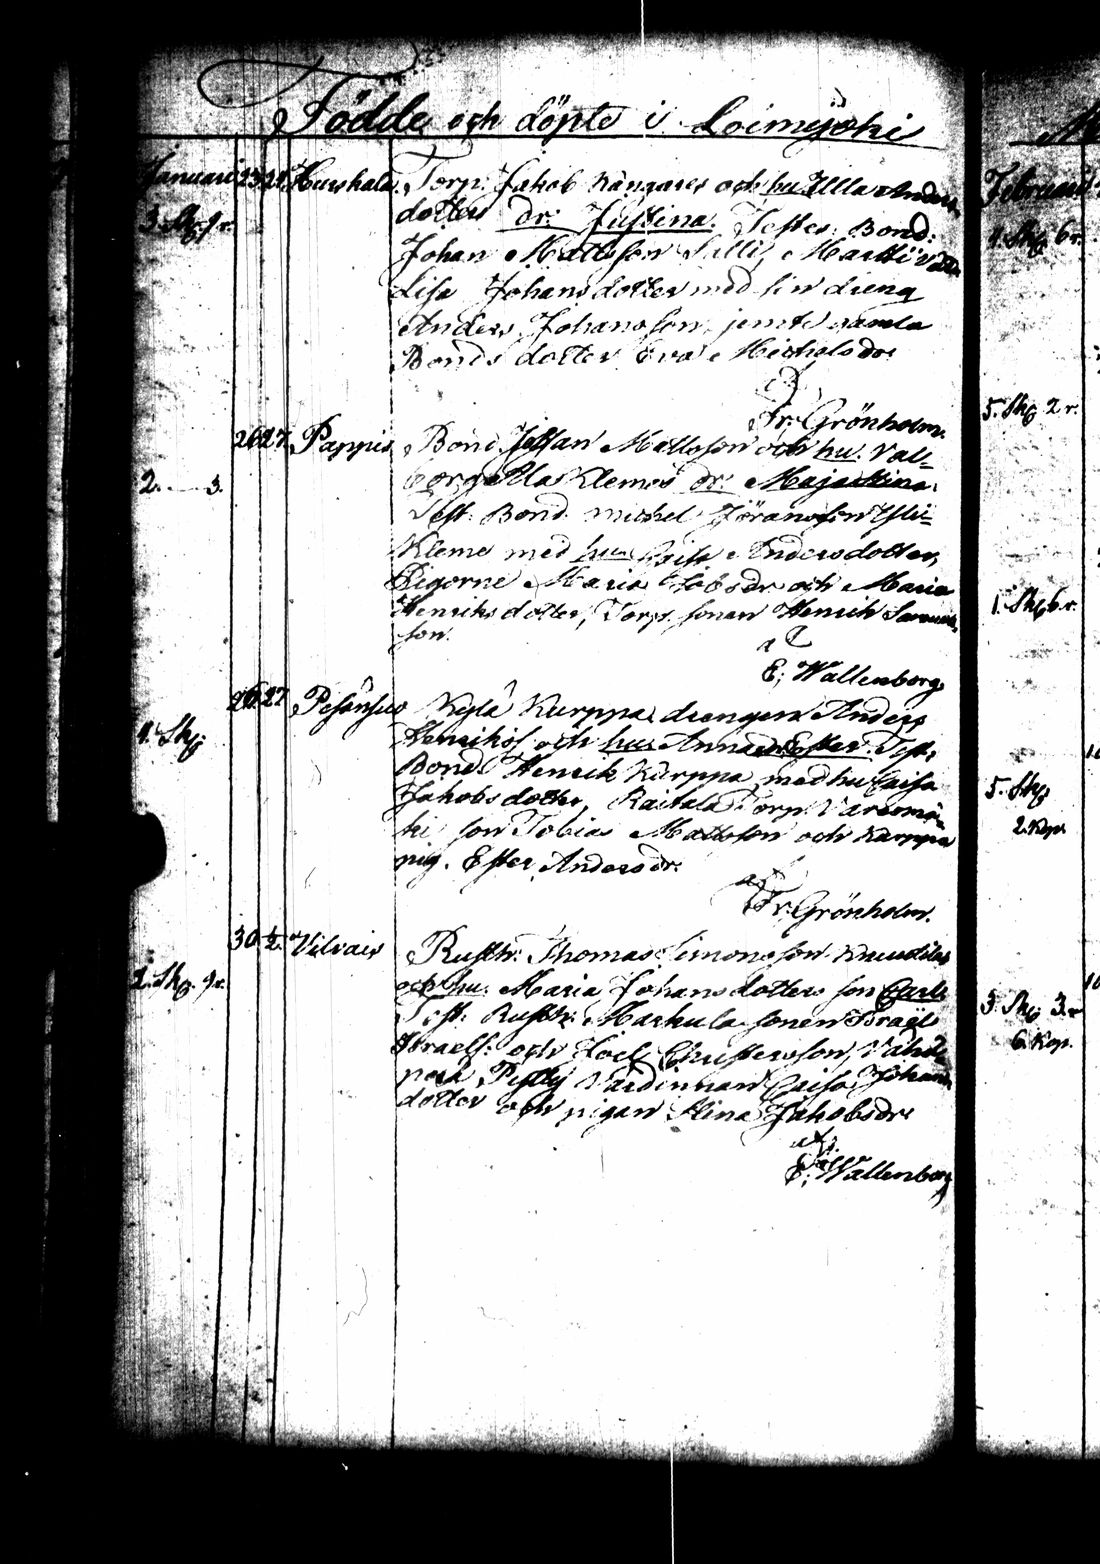 Födde och döpte i Loimijoki
Januari 23 24 Hurskala. Torp: Jakob Kångares och hu: Ulla Anders
3. Skp. 1 r. dotters dr: Justina. Testes: Bond:
Johan Mattsson Salli, Martti
Lisa Johansdotter med sin dreng
Anders Johansson, jemte samla
Bonds dotter Eva Michelsdr
af
Fr. Grönholm.
26 27. Pappis Bond. Johan Mattsson och hu. Val-
2. — 3. borg Ullas Klemos dr: Maja Stina.
Test. Bond. Michel Jöransson Ylli-
Kleme med hu Andersdotter,
Pigorne Maria Jobsdr och Maria
Henriksdotter, Torp. sonen Henrik Samuels
son.
af
E. Wallenberg
26 27 Pesänsuo Kylä Kurppa drengen Anders
4. Skp. Henriks och hu: Anna dr Ester. Test:
Bond. Henrik Kurppa med hu Caisa
Jakobsdotter, Raitala Torp. Varesmä-
ki son Tobias Mattsson och Kurppa
pig. Ester Andersdr.
af
Fr. Grönholm.
30 ½. Vilvais Rusth: Thomas Simonsson
2. Skp. 9 r. och hu. Maria Johansdotters son Carl.
Test: Rusth: Markula sonen Israel
Israels: och Joel Christersson, Vähä-
perä Värdinnan Caisa Johans
dotter och pigan Stina Jakobsdr
af
E. Wallenberg
Februari
4. Skp. 6 r.
5. Skp. 2 r.
1. Skp. 6 r.
5. Skp.
2. Kop.
3. Skp. 3. r
6. Kop.